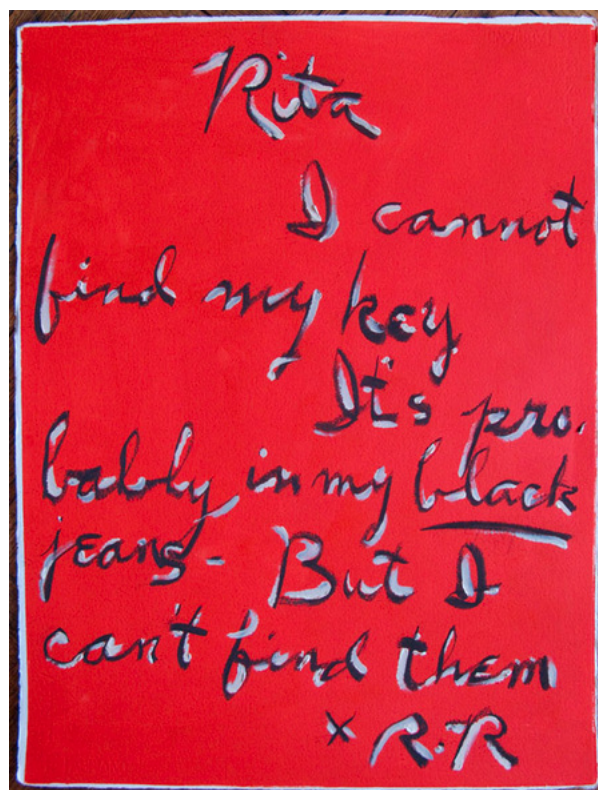 Rita
I cannot
find my key
It's pro.
bably in my black
jeans- But I
can't find them
x R.R